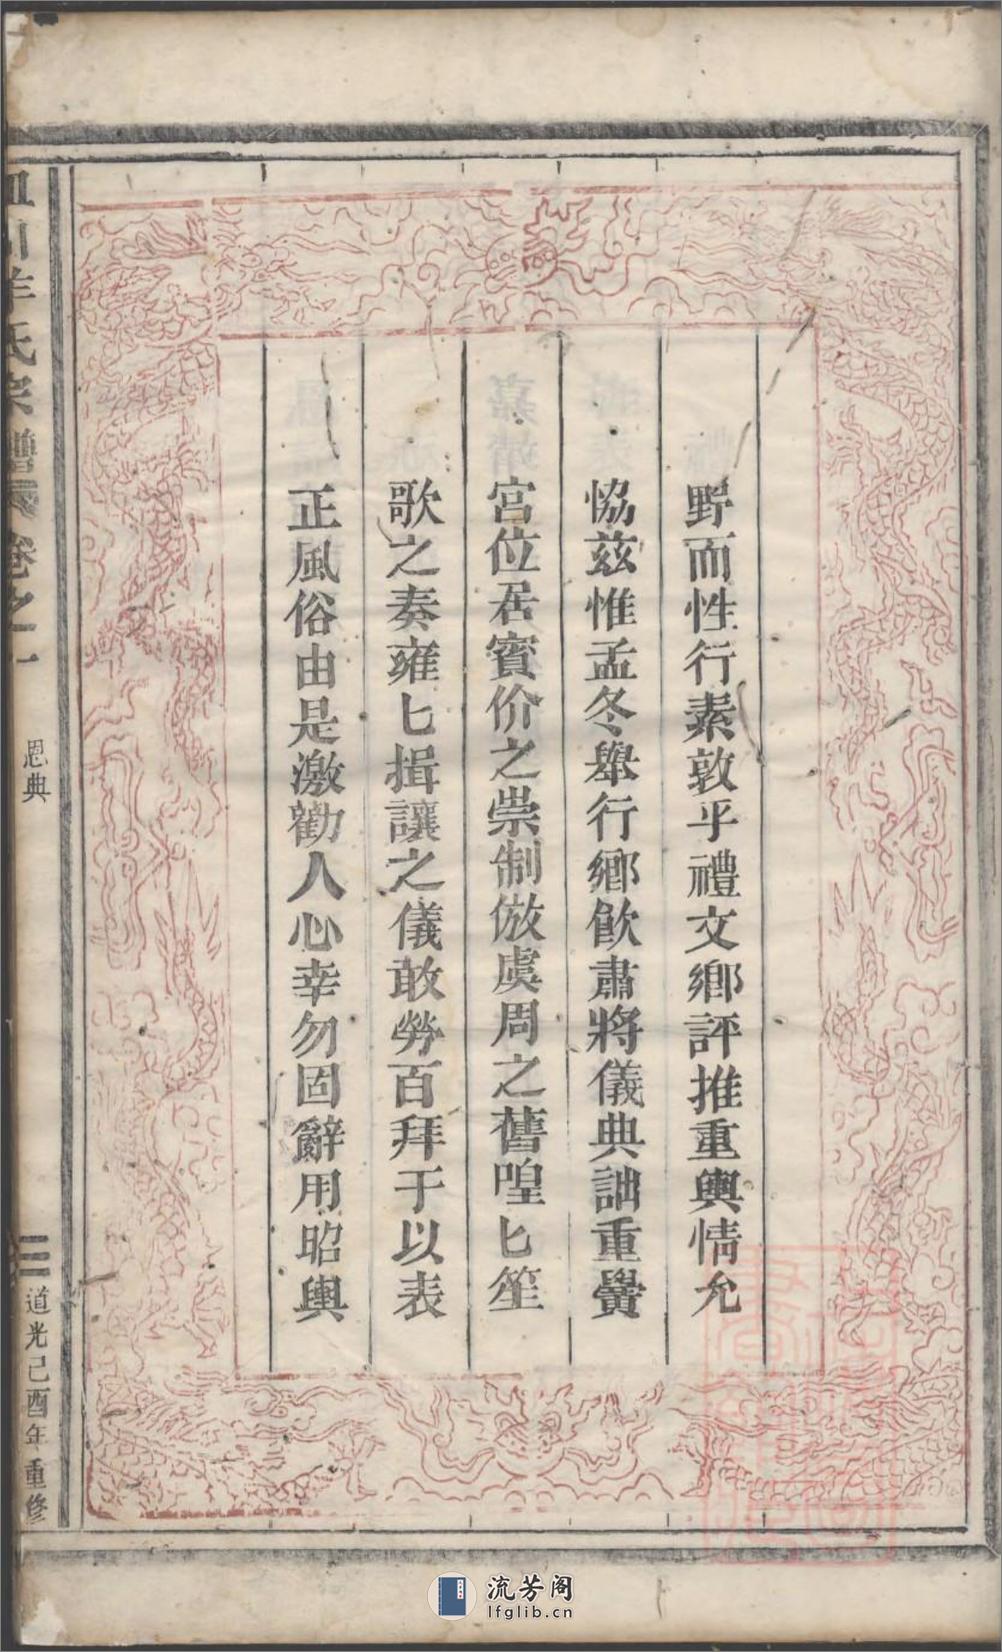 野而性行素敦乎禮文鄉評推重輿情允
恊茲惟孟冬舉行鄉飲肅將儀典詘重黌
宮位居賓价之崇制倣虞周之舊喤匕笙
歌之奏雍匕揖讓之儀敢勞百拜于以表
正風俗由是激勸人心幸勿固辭用昭輿
川羊氏宗譜 卷之一
恩典
三
道光己酉年重修
流芳阁
lfglib.cn